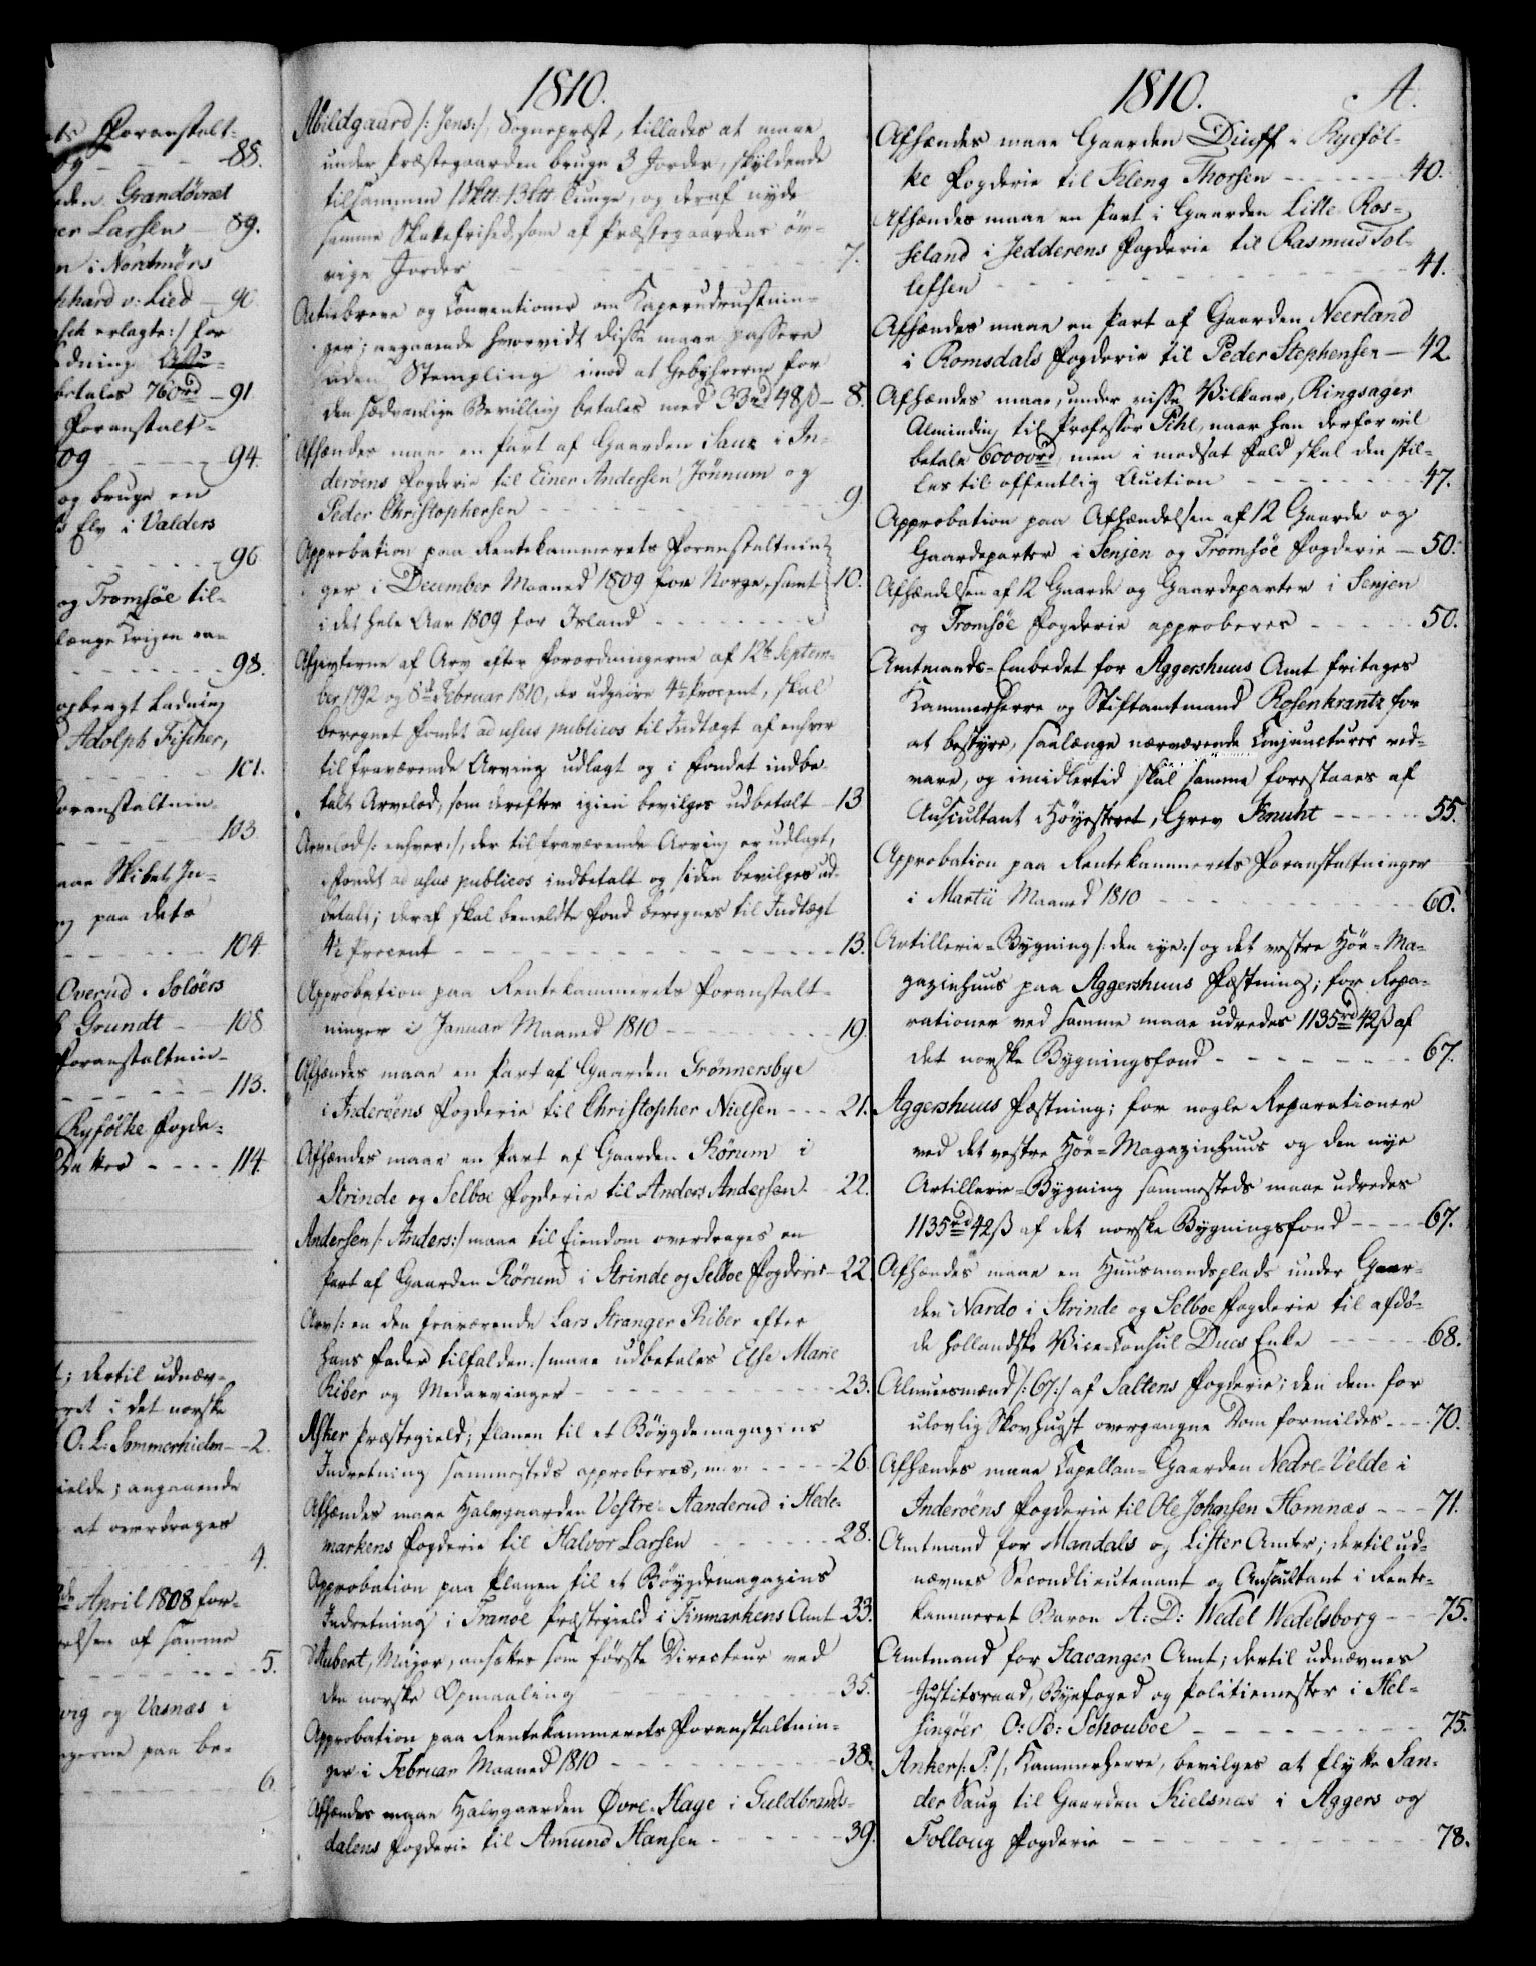 ets Foranstalt-
og - - - 88.
den Grandövnet
er Larsen 89.
n i Nordmörs
hard v: Lied - 90
erlagte:/ for
dning
betales 760 rd - 91
Foranstalt-
09 - - - 94.
og bruge en
s Elv i Valders
- - - 96
og Tromsöe til-
længe Krigen
- - - 98.
opbragt Ladning
Adolph Fischer,
- - - 101.
Foranstaltnin-
- - - 103
Skibet In-
paa dets
- - - 104
Overud i Solöers
Grundt - 108
Foranstaltnin-
- - - 113.
Ryfölke Fogde-
- - - 114
; dertil udnæv-
i det norske
O: L: Sommerhielm - 2.
ielde; angaaende
at overdrages
4.
April 1808 for-
elsen af samme
- - - 5.
vig og Vasnæs i
gerne paa be-
6
1810.
Abildgaard /: Jens:/, Sognepræst, tillades at maae
under Præstegaarden bruge 3 Jorder, skyldende
tilsammen
samme Skattefrihed, som af Præstegaardens öv-
rige Jorder - - - 7.
Actiebreve og Conventioner om Kaperudrustnin-
ger; angaaende hvorvidt disse maae passere
uden Stempling imod at Gebyhrerne for
den sædvanlige Bevilling betales med 33 rd 48 ß - 8.
Afhændes maae en Part af Gaarden Saux i In-
deröens Fogderie til Einer Andersen Jönnum og
Peder Christophersen - - - 9
Approbation paa Rentekammerets Foranstaltnin-
ger i December Maaned 1809 for Norge, samt - 10.
i det hele Aar 1809 for Island - - -
Afgivterne af Arv efter Forordningerne af 12te Septem-
ber 1792 og 8de Februar 1810, der udgiöre 4½ Procent, skal
beregnet Fondet ad usus publicos til Indtægt af enhver
til fraværende Arving udlagt og i Fondet indbe-
talt Arvelod, som derefter igien bevilges udbetalt - 13
Arvelod /: enhver:/, der til fraværende Arving er udlagt,
i Fondet ad usus publicos indbetalt og siden bevilges ud-
betalt; deraf skal bemeldte Fond beregnes til Indtægt
4½ Procent - - - 13.
Approbation paa Rentekammerets Foranstalt-
ninger i Januar Maaned 1810 - - - 19.
Afhændes maae en Part af Gaarden Grönnersbye
i Inderöens Fogderie til Christopher Nielsen - - - 21.
Afhændes maae en Part af Gaarden Rörum i
Strinde og Selboe Fogderie til Anders Andersen - 22.
Andersen /: Anders:/ maae til Eiendom overdrages en
Part af Gaarden Rörum i Strinde og Selboe Fogderie - 22.
Arv /: en den fraværende Lars Stranger Riber efter
hans Fader tilfalden:/ maae udbetales Else Marie
Riber og Medarvinger - - - 23.
Asker Præstegield; Planen til et Böygdemagazins
Indretning sammesteds approberes, m.v. - - - 26
Afhændes maae Halvgaarden Vestre-Aanderud i Hede-
markens Fogderie til Halvor Larsen - - - 28.
Approbation paa Planen til et Böygdemagazins
Indretning i Tranöe Præstegield i Finmarkens Amt - 33.
d'Aubert, Major, ansættes som förste Directeur ved
den norske Opmaaling - - - 35.
Approbation paa Rentekammerets Foranstaltnin-
ger i Februar Maaned 1810 - - - 38.
Afhændes maae Halvgaarden Övre-Hage i Guldbrands-
dalens Fogderie til Amund Hansen - - - 39.
1810. A.
Afhændes maae Gaarden Diuff i Ryeföl-
ke Fogderie til Kleng Thorsen - - - 40.
Afhændes maae en Part i Gaarden Lille Ros-
seland i Jedderens Fogderie til Rasmus Tol-
lefsen - - - 41.
Afhændes maae en Part af Gaarden Neerland
i Romsdals Fogderie til Peder Stephensen - 42
Afhændes maae, under visse Vilkaar, Ringsager
Alminding til Professor Pihl, naar han derfor vil
betale 6000 rd, men i modsat Fald skal den stil-
les til offentlig Auction - - - 47.
Approbation paa Afhændelsen af 12 Gaarde og
Gaardeparter i Senjen og Tromsöe Fogderie - 50.
Afhændelsen af 12 Gaarde og Gaardeparter i Senjen
og Tromsöe Fogderie approberes - - - 50.
Amtmands-Embedet for Aggershuus Amt fritages
Kammerherre og Stiftamtmand Rosenkrantz for
at bestyre, saalænge nærværende Conjuncturer ved-
vare, og imidlertid skal samme forestaaes af
Auscultant i Höyesteret, Grev Knuht - - - 55.
Approbation paa Rentekammerets Foranstaltninger
i Martii Maaned 1810 - - - 60.
Artillerie-Bygning /: den nye:/ og det vestre Höe-Ma-
gazinhuus paa Aggershuus Fæstning; for Repa-
rationer ved samme maae udredes 1135 rd 42 ß af
det norske Bygningsfond - - - 67.
Aggershuus Fæstning; for nogle Reparationer
ved det vestre Höe-Magazinhuus og den nye
Artillerie-Bygning sammesteds maae udredes
1135 rd 42 ß af det norske Bygningsfond - - - 67.
Afhændes maae en Huusmandsplads under Gaar-
den Nardo i Strinde og Selboe Fogderie til afdö-
de hollandske Vice-Consul Ducs Enke - - - 68.
Almuesmænd /: 67:/ af Saltens Fogderie; den dem for
ulovlig Skovhugst overgangne Dom formildes - - - 70.
Afhændes maae Capellan-Gaarden Nedre-Velde i
Inderöens Fogderie til Ole Johnsen Homnæs - - - 71.
Amtmand for Mandals og Lister Amter; dertil ud-
nævnes Secondlieutenant og Auscultant i Rente-
kammeret Baron A: D: Wedel Wedelsborg - - - 75.
Amtmand for Stavanger Amt; dertil udnævnes
Justitsraad, Byefoged og Politiemester i Hel-
singöer O: B: Schouboe - - - 75.
Anker /: P:/, Kammerherre, bevilges at flytte San-
der Saug til Gaarden Kielsnæs i Aggers og
Folloug Fogderie - - - 78.